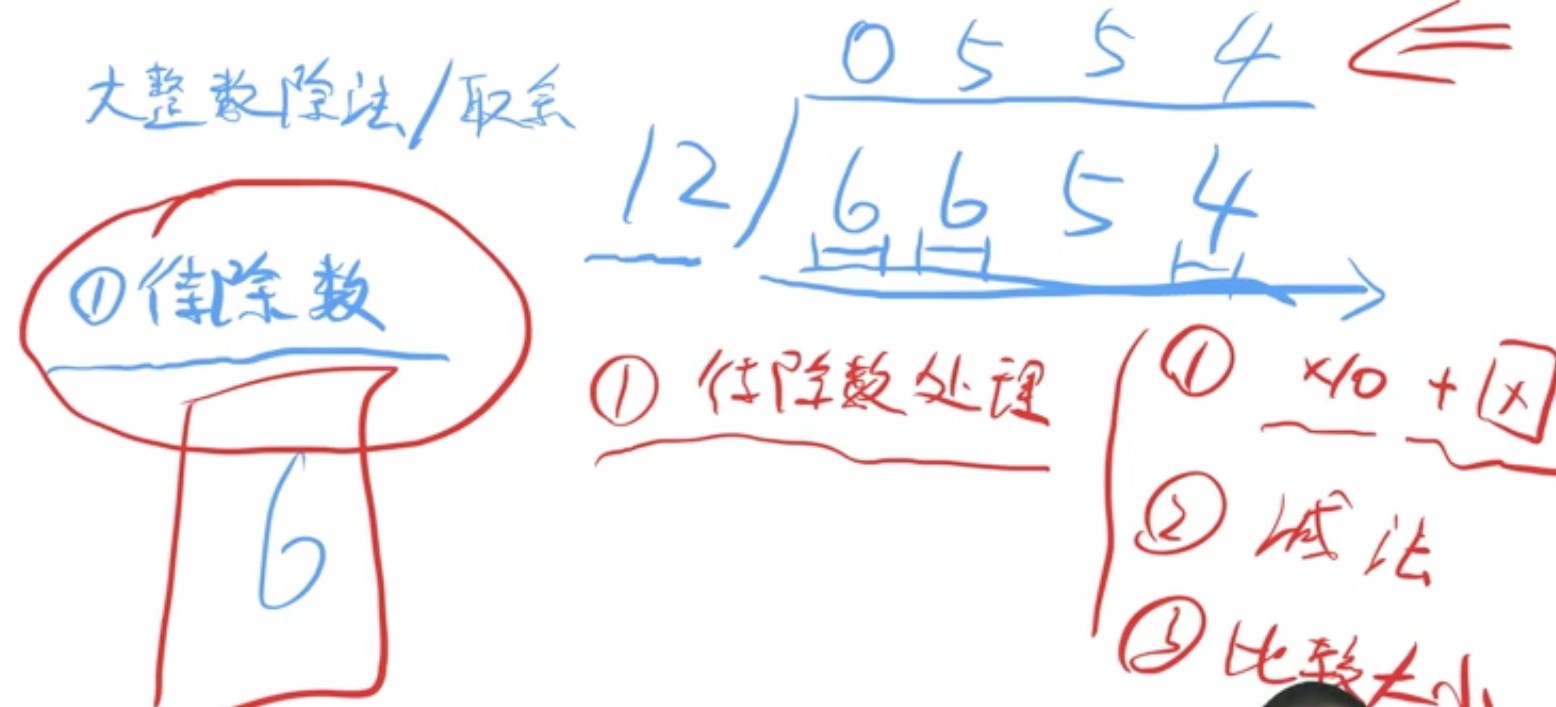 大整数除法/取余
0 5 5 4
12/6 6 5 4
①待除数
6
① 待除数处理
① ×10 + x
② 减法
③ 比较大小